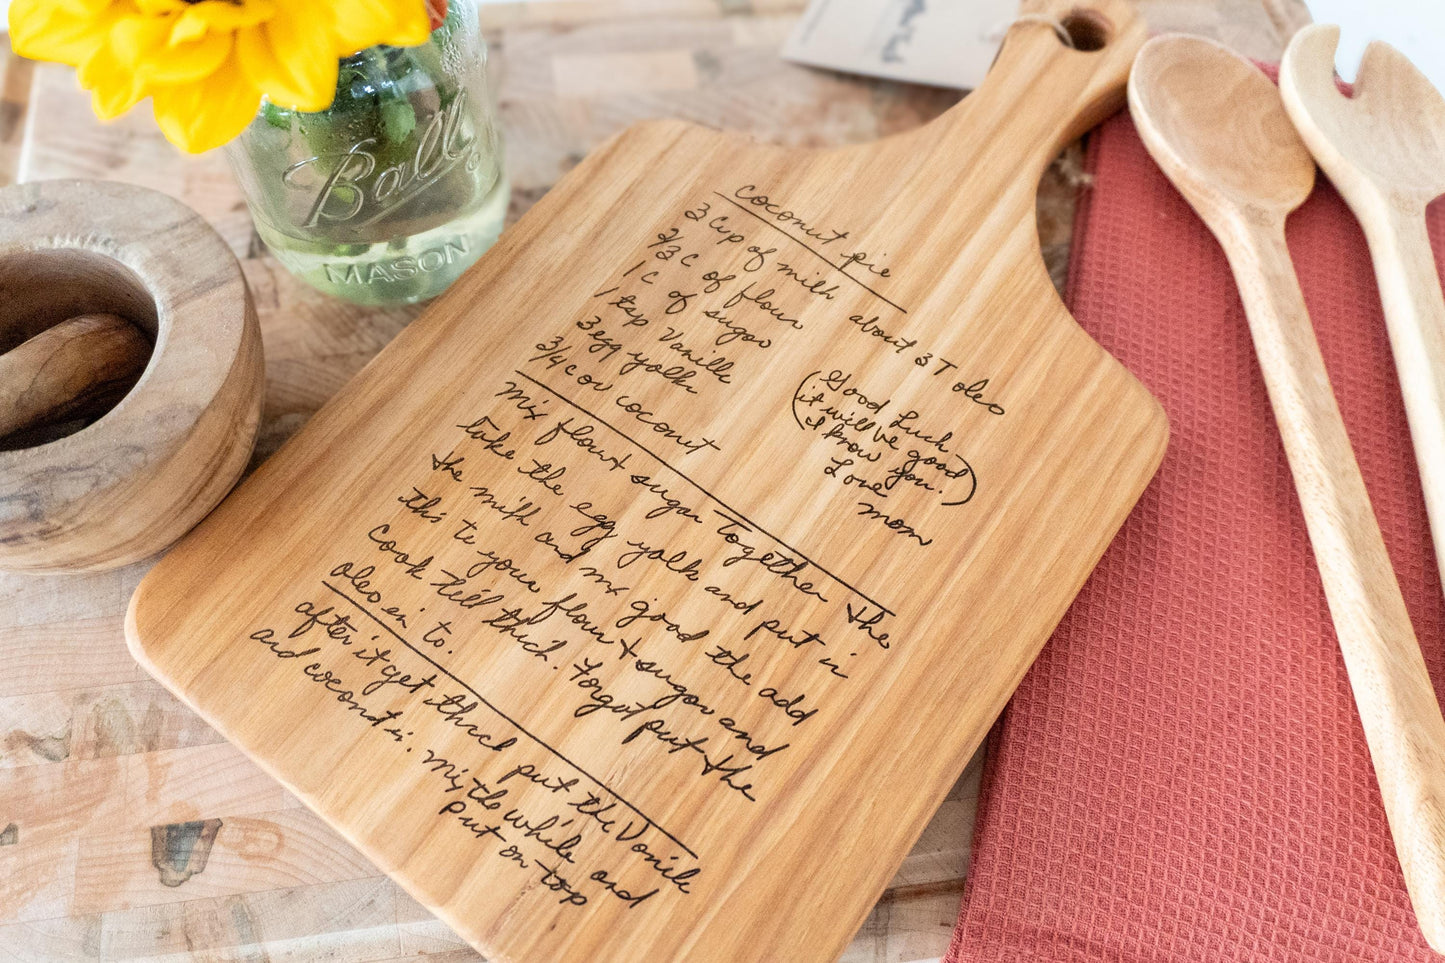 Ball
MASON
coconut pie
3 cup of milk about 3 T oleo
2/3 C of flour
1 C of sugar
1 tsp Vanille
3 egg yolks
3/4 c ov coconut
(Good Luck
it will be good
I know you.)
Love
mom
mix flour + sugar Together the
take the egg yolk and put in
the milk and mx good the add
this to your flour + sugar and
Cook till thick. Forgot put the
oleo in to.
after it get thick put the Vanile
and coconut in. Mix the while and
put on top